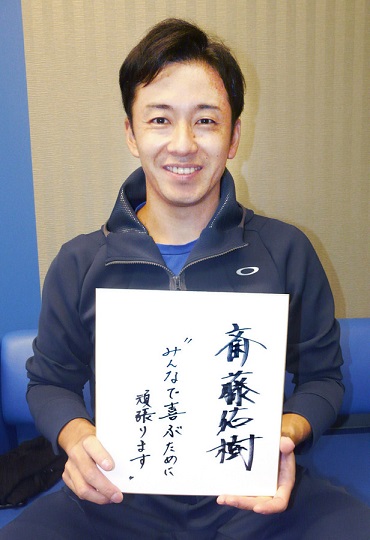 斎藤佑樹
"みんなで喜ぶために
頑張ります"